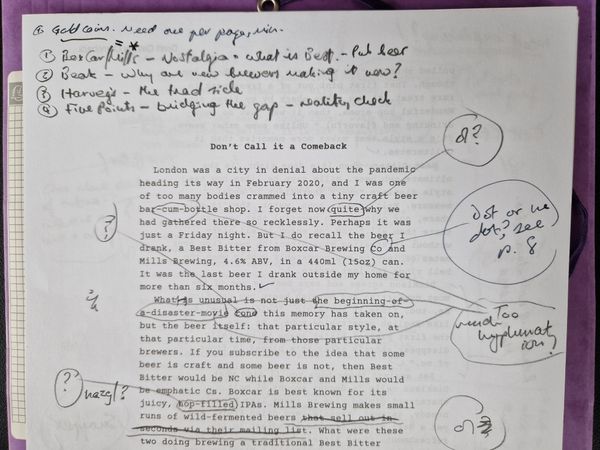 Gold coins. Need one per page, min.
① BoxCar/Mills – Nostalgia – what is Best. – Pub beer
② Beak – Why are new brewers making it now?
③ Harveys – the trad side
④ Five Points – bridging the gap – reality check
Don't Call it a Comeback
London was a city in denial about the pandemic
heading its way in February 2020, and I was one
of too many bodies crammed into a tiny craft beer
bar-cum-bottle shop. I forget now quite why we
had gathered there so recklessly. Perhaps it was
just a Friday night. But I do recall the beer I
drank, a Best Bitter from Boxcar Brewing Co and
Mills Brewing, 4.6% ABV, in a 440ml (15oz) can.
It was the last beer I drank outside my home for
more than six months.
What is unusual is not just the beginning-of-
a-disaster-movie cone this memory has taken on,
but the beer itself: that particular style, at
that particular time, from those particular
brewers. If you subscribe to the idea that some
beer is craft and some beer is not, then Best
Bitter would be NC while Boxcar and Mills would
be emphatic Cs. Boxcar is best known for its
juicy, hop-filled IPAs. Mills Brewing makes small
runs of wild-fermented beers that sell out in
seconds via their mailing list. What were these
two doing brewing a traditional Best Bitter
?
Dot or no
dot? see
p. 8
Too
much
hyphenat
ion?
? nazgl?